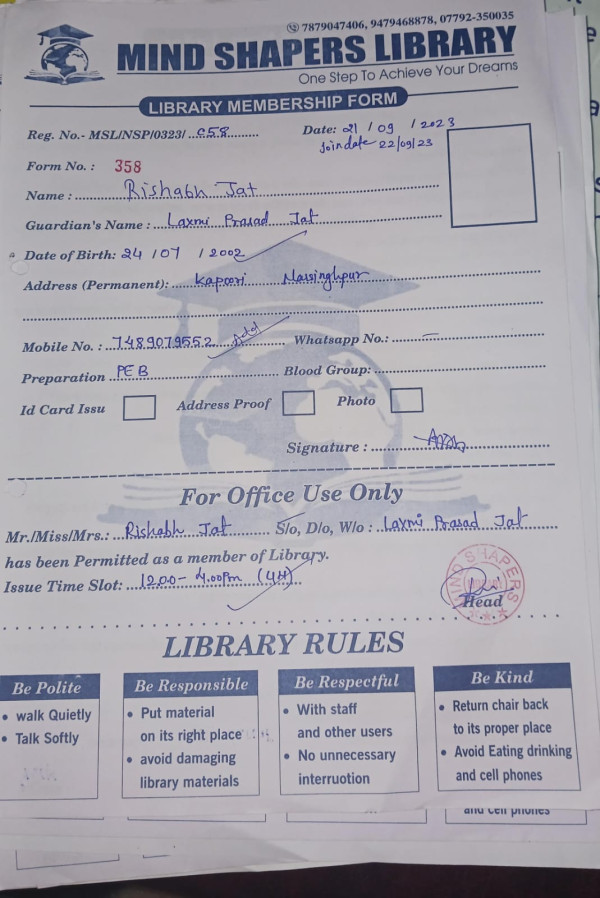 7879047406, 9479468878, 07792-350035
MIND SHAPERS LIBRARY
One Step To Achieve Your Dreams
LIBRARY MEMBERSHIP FORM
Reg. No.- MSL/NSP/0323/ C58 Date: 21 / 09 / 2023
Join date 22/09/23
Form No. : 358
Name : Rishabh Jat
Guardian's Name : Laxmi Prasad Jat
Date of Birth: 24 / 07 / 2002
Address (Permanent): Kapoori Narsinghpur
Mobile No. : 7489079552 Add Whatsapp No.: —
Preparation PEB Blood Group:
Id Card Issu Address Proof Photo
Signature :
For Office Use Only
Mr./Miss/Mrs.: Rishabh Jat S/o, D/o, W/o : Laxmi Prasad Jat
has been Permitted as a member of Library.
Issue Time Slot: 12.00 - 4.00Pm (4H)
MIND SHAPERS
Head
LIBRARY RULES
Be Polite
• walk Quietly
• Talk Softly
Be Responsible
• Put material
on its right place
• avoid damaging
library materials
Be Respectful
• With staff
and other users
• No unnecessary
interruotion
Be Kind
• Return chair back
to its proper place
• Avoid Eating drinking
and cell phones
and cell phones